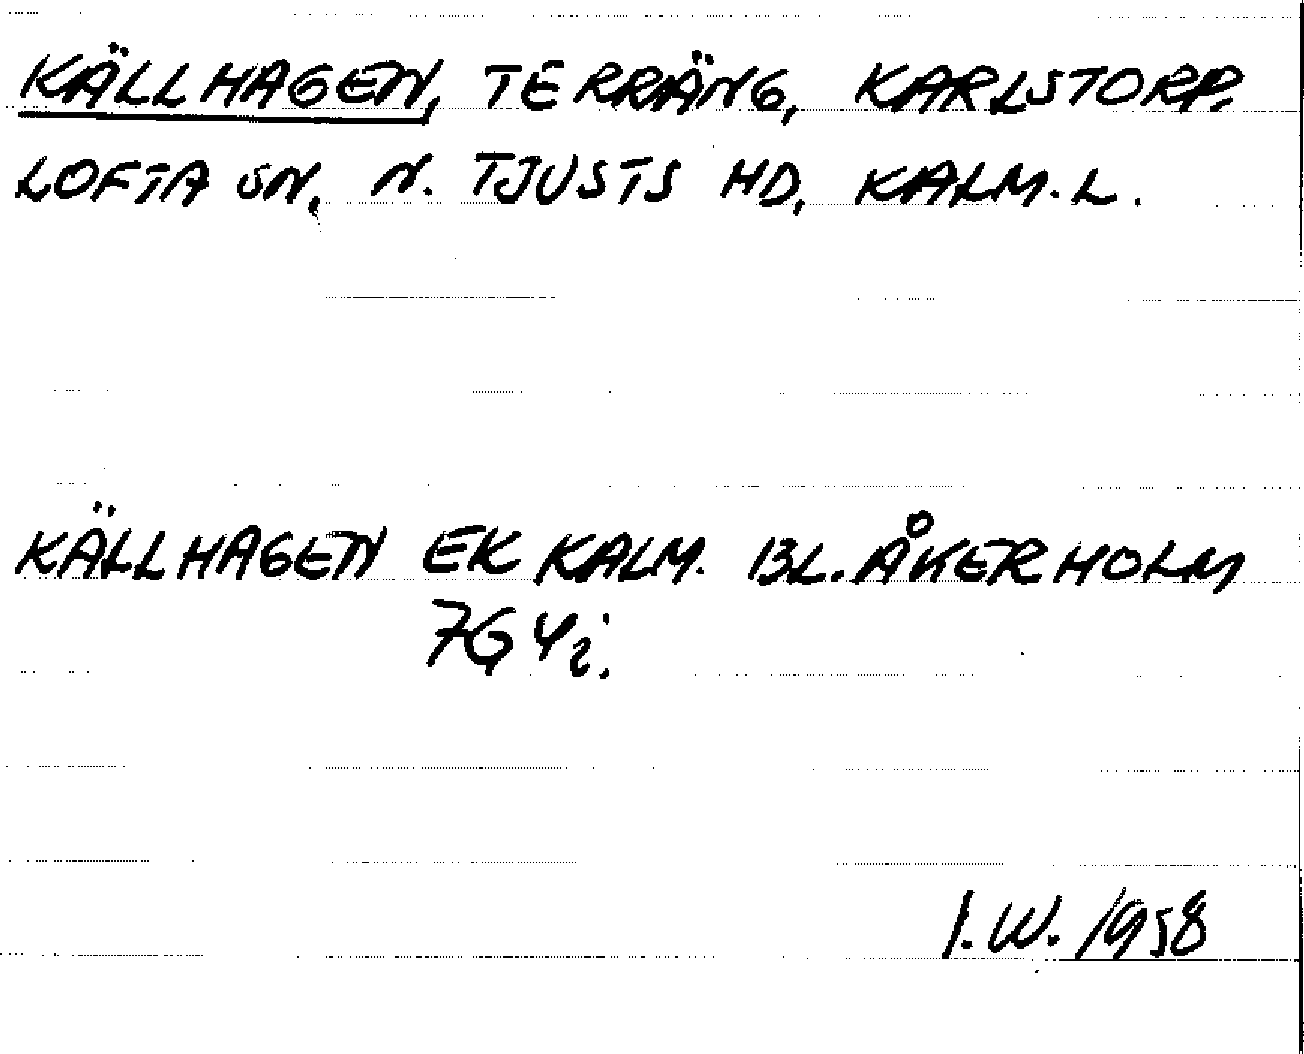 KÄLLHAGEN, TERRÄNG, KARLSTORP.
LOFTA SN, N. TJUSTS HD, KALM. L.
KÄLLHAGEN EK KALM. BL. ÅKERHOLM
7G 4i.
I.W. 1958